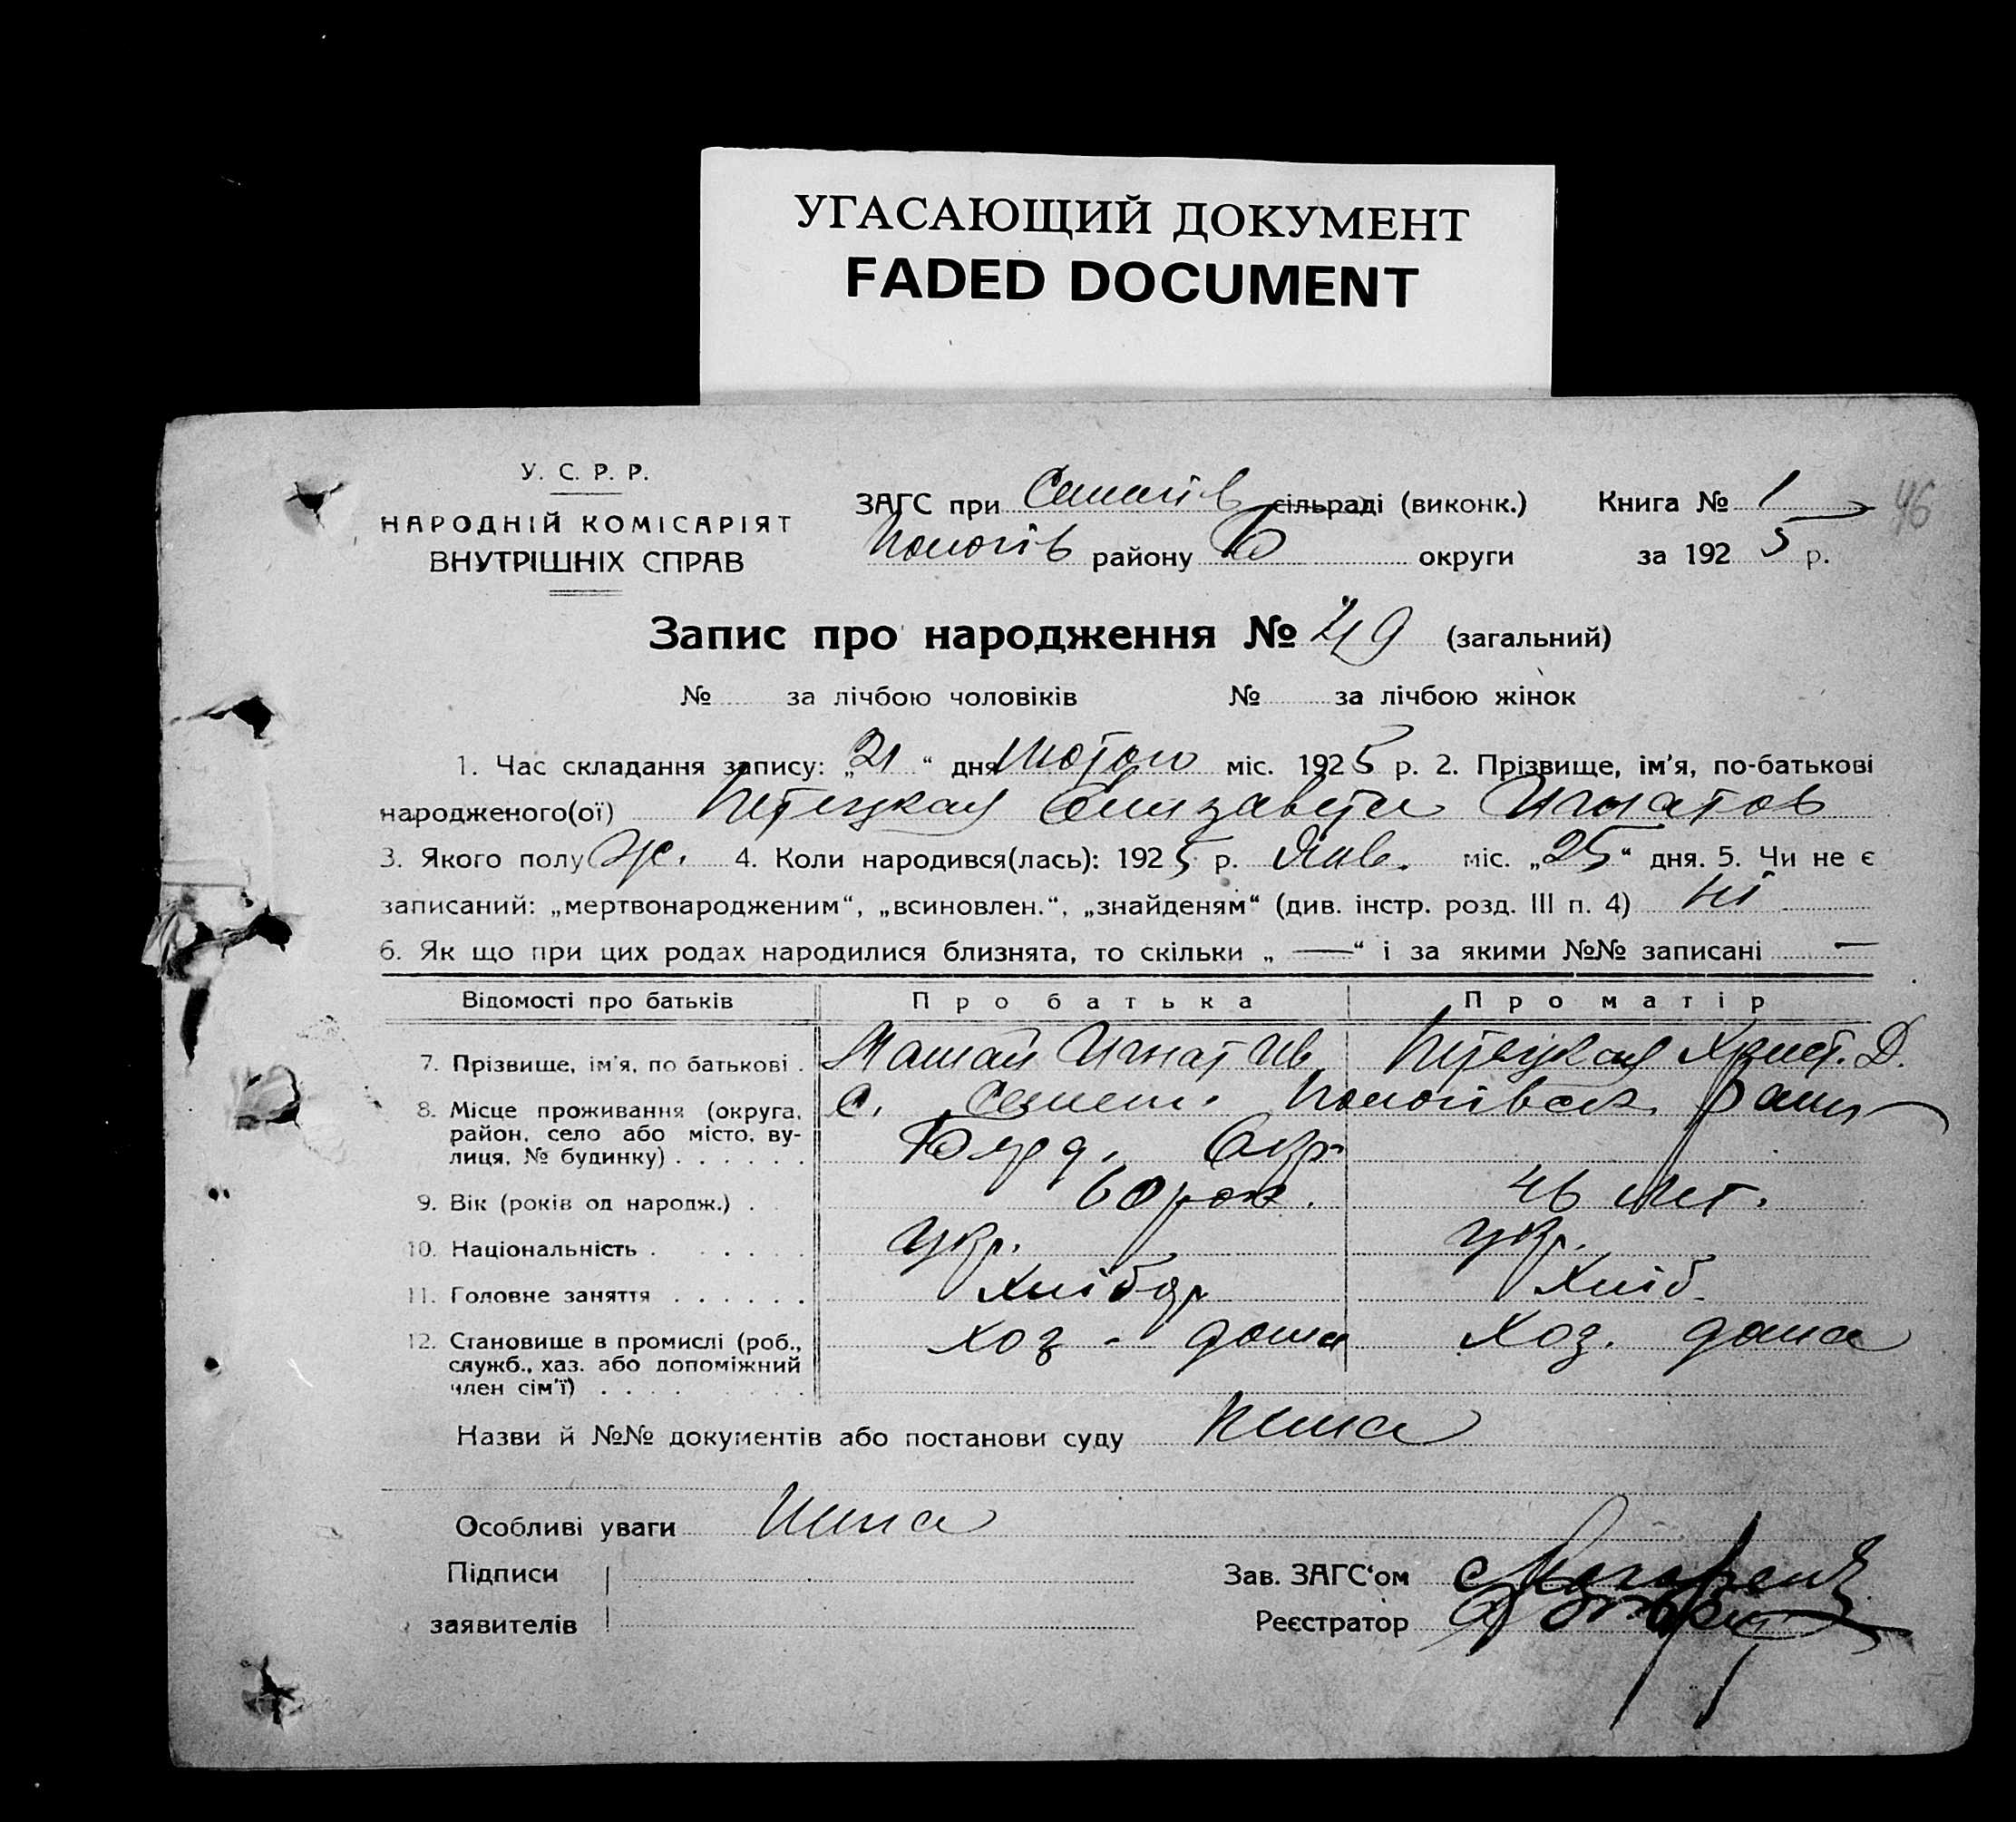 УГАСАЮЩИЙ ДОКУМЕНТ
FADED DOCUMENT
У. С. Р. Р.
НАРОДНІЙ КОМІСАРІЯТ
ВНУТРІШНІХ СПРАВ
ЗАГС при сільраді (виконк.) Книга № 1
46
району округи за 1925 р.
Запис про народження № 49 (загальний)
№ за лічбою чоловіків № за лічбою жінок
1. Час складання запису: „21“ дня Лютого міс. 1925 р. 2. Прізвище, ім'я, по-батькові
народженого(ої) Елизавета Игнатов
3. Якого полу ж. 4. Коли народився(лась): 1925 р. Янв. міс. „25“ дня. 5. Чи не є
записаний: „мертвонародженим“, „всиновлен.“, „знайденям“ (див. інстр. розд. III п. 4) ні
6. Як що при цих родах народилися близнята, то скільки „ — “ і за якими №№ записані —
Відомості про батьків Про батька Про матір
7. Прізвище, ім'я, по батькові . Игнат Ив. Христ. Д.
8. Місце проживання (округа, с.
район, село або місто, ву-
лиця, № будинку) . . . . . .
9. Вік (років од народж.) . 60 рок. 46 лет.
10. Національність . . . . . укр. укр.
11. Головне заняття . . . . . . Хлібор Хліб.
12. Становище в промислі (роб., Хоз. дома Хоз. дома
служб., хаз. або допоміжний
член сім'ї) . . . . . . .
Назви й №№ документів або постанови суду Нема
Особливі уваги Нема
Підписи Зав. ЗАГС‘ом
заявителів Реєстратор